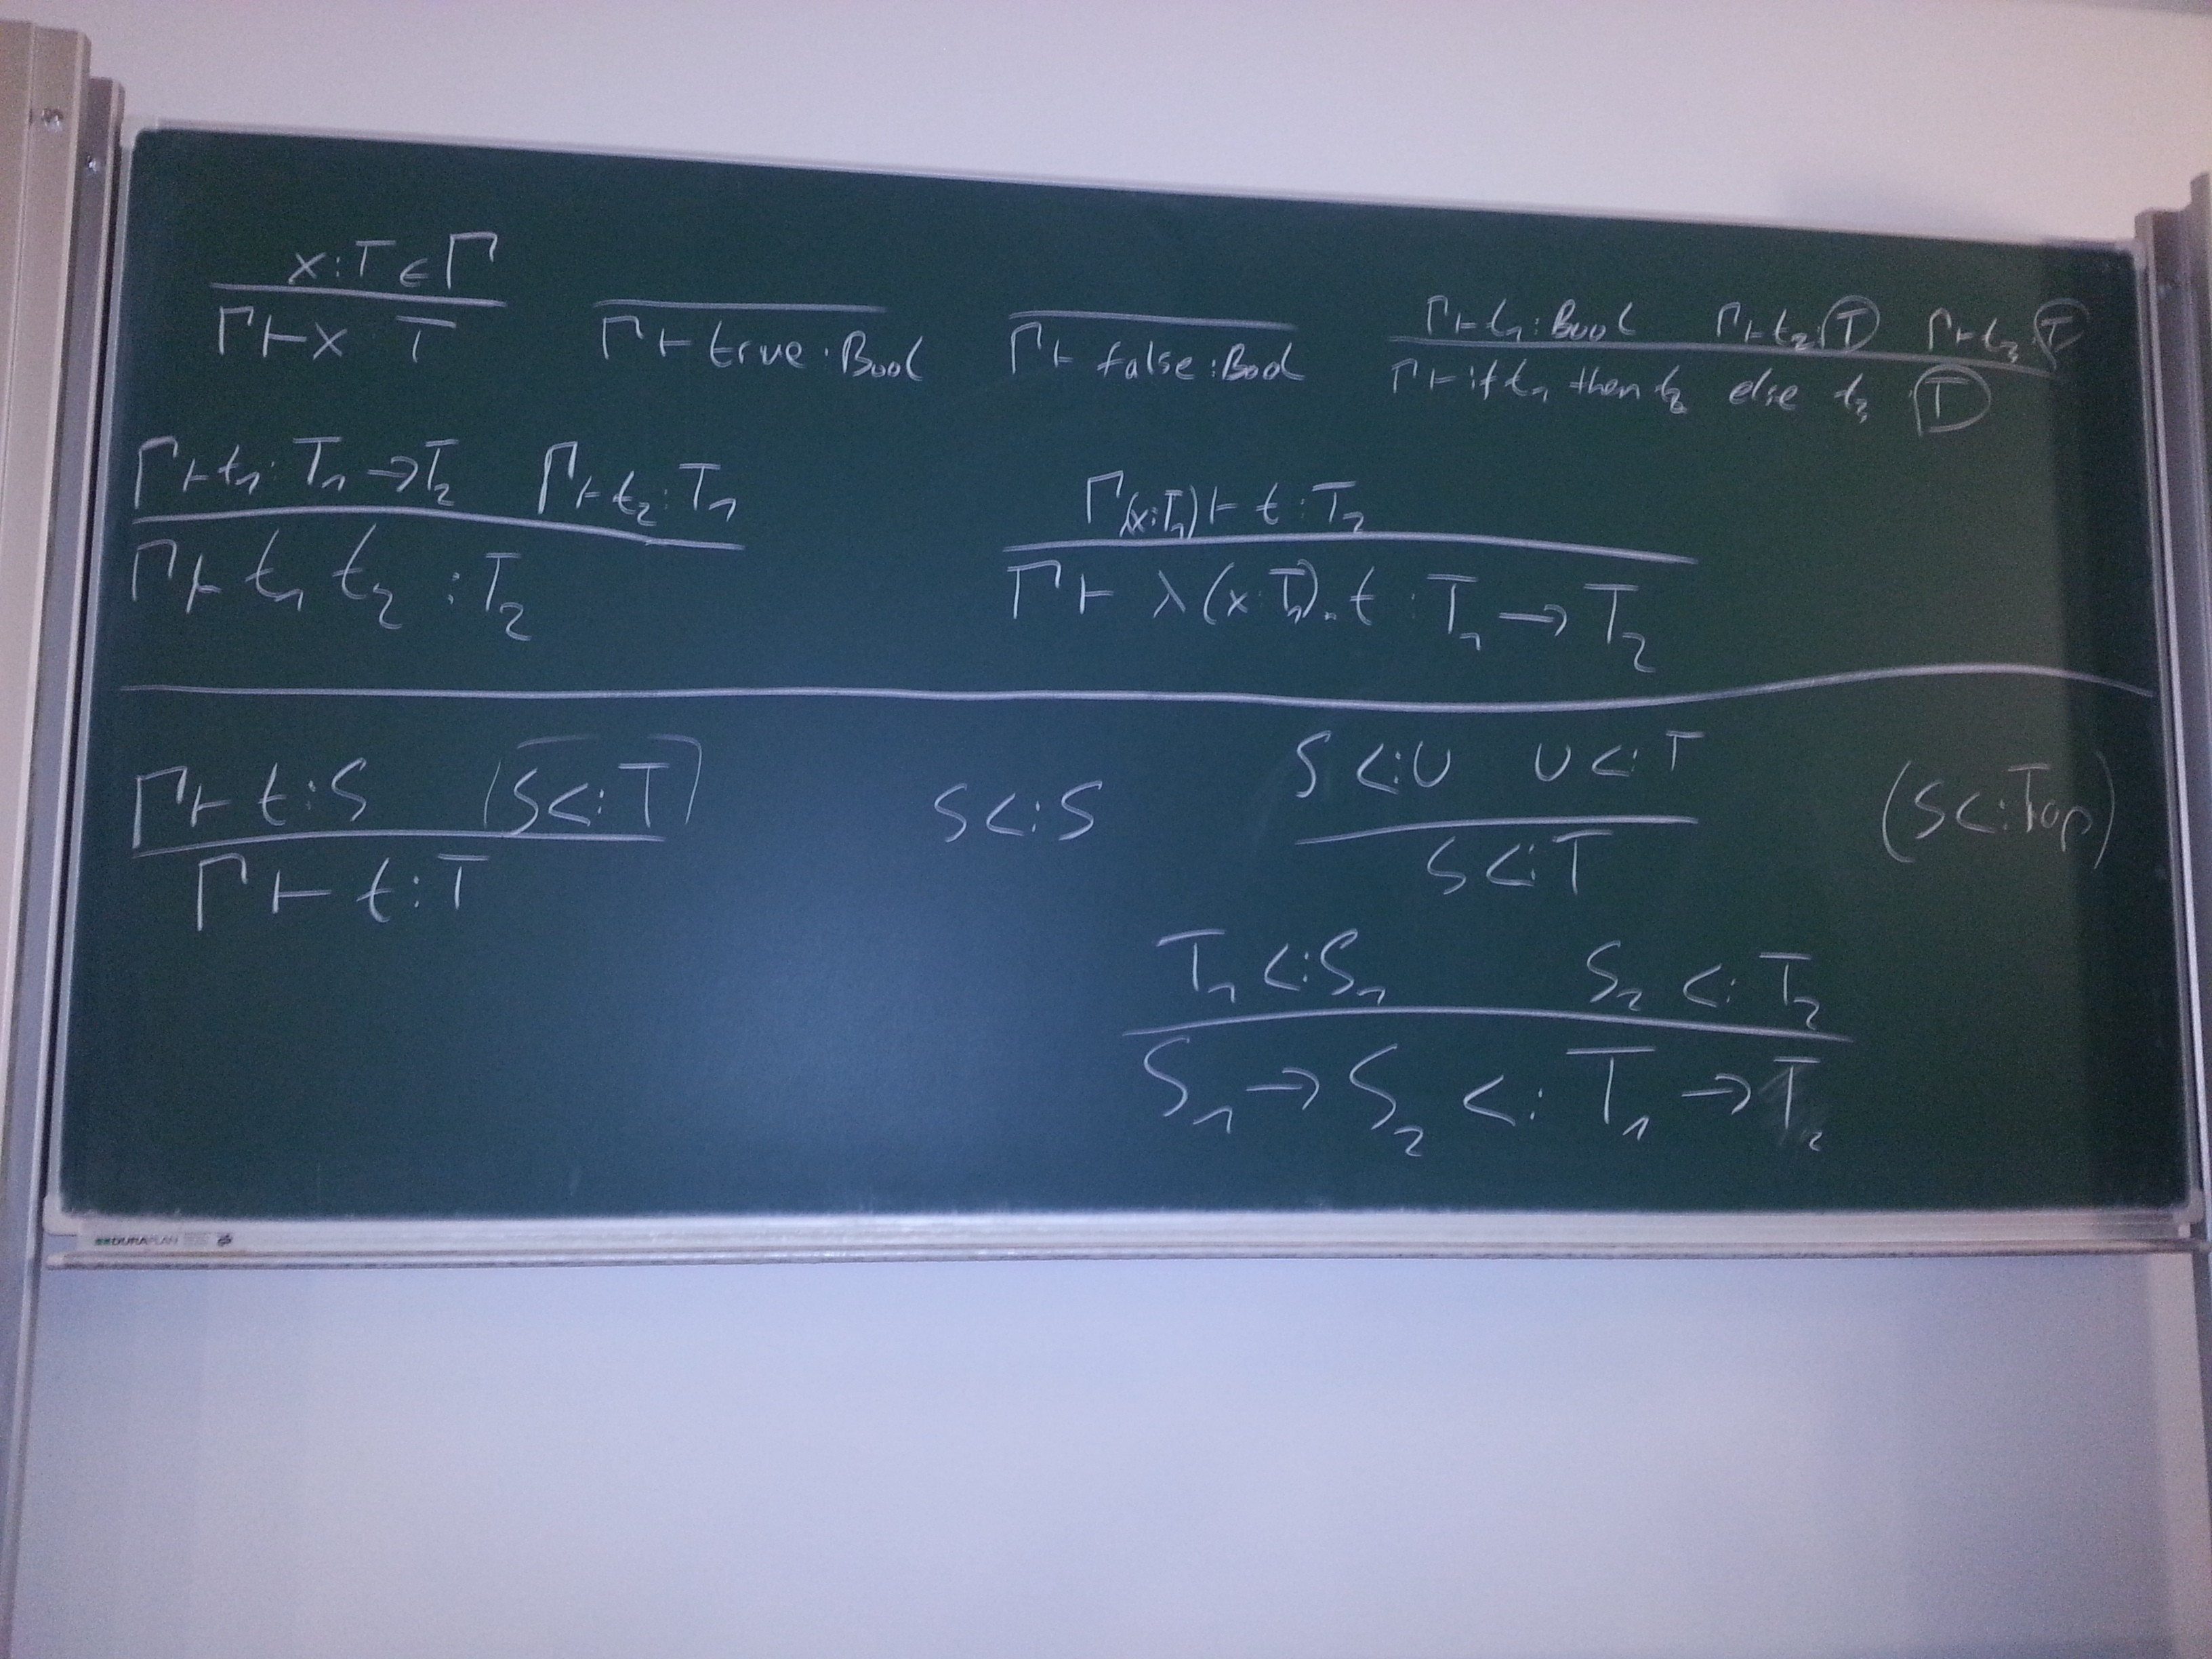 x:T ∈ Γ
Γ ⊢ x T
Γ ⊢ true:Bool
Γ ⊢ false:Bool
Γ ⊢ t₁:Bool Γ ⊢ t₂:T Γ ⊢ t₃:T
Γ ⊢ if t₁ then t₂ else t₃ :T
Γ ⊢ t₁:T₁→T₂ Γ ⊢ t₂:T₁
Γ ⊢ t₁ t₂ :T₂
Γ,(x:T₁) ⊢ t:T₂
Γ ⊢ λ(x:T₁).t :T₁→T₂
Γ ⊢ t:S S<:T
Γ ⊢ t:T
S<:S
S<:U U<:T
S<:T
(S<:Top)
T₁<:S₁ S₂<:T₂
S₁→S₂<:T₁→T₂
DURAPLAN